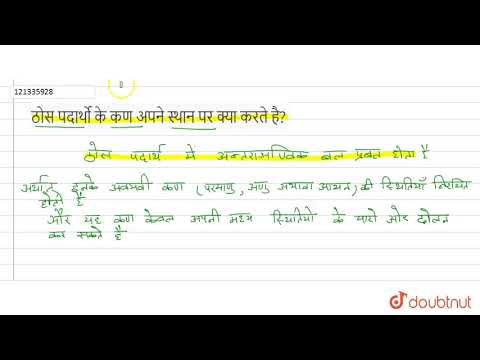 121335928
ठोस पदार्थो के कण अपने स्थान पर क्या करते है?
ठोस पदार्थ मे अन्तराआण्विक बल प्रबल होता है
अर्थात इनके अवयवी कण (परमाणु, अणु अथवा आयन) की स्थितियाँ निश्चित
होती है
और यह कण केवल अपनी मध्य स्थितियो के चारो ओर दोलन
कर सकते है
doubtnut